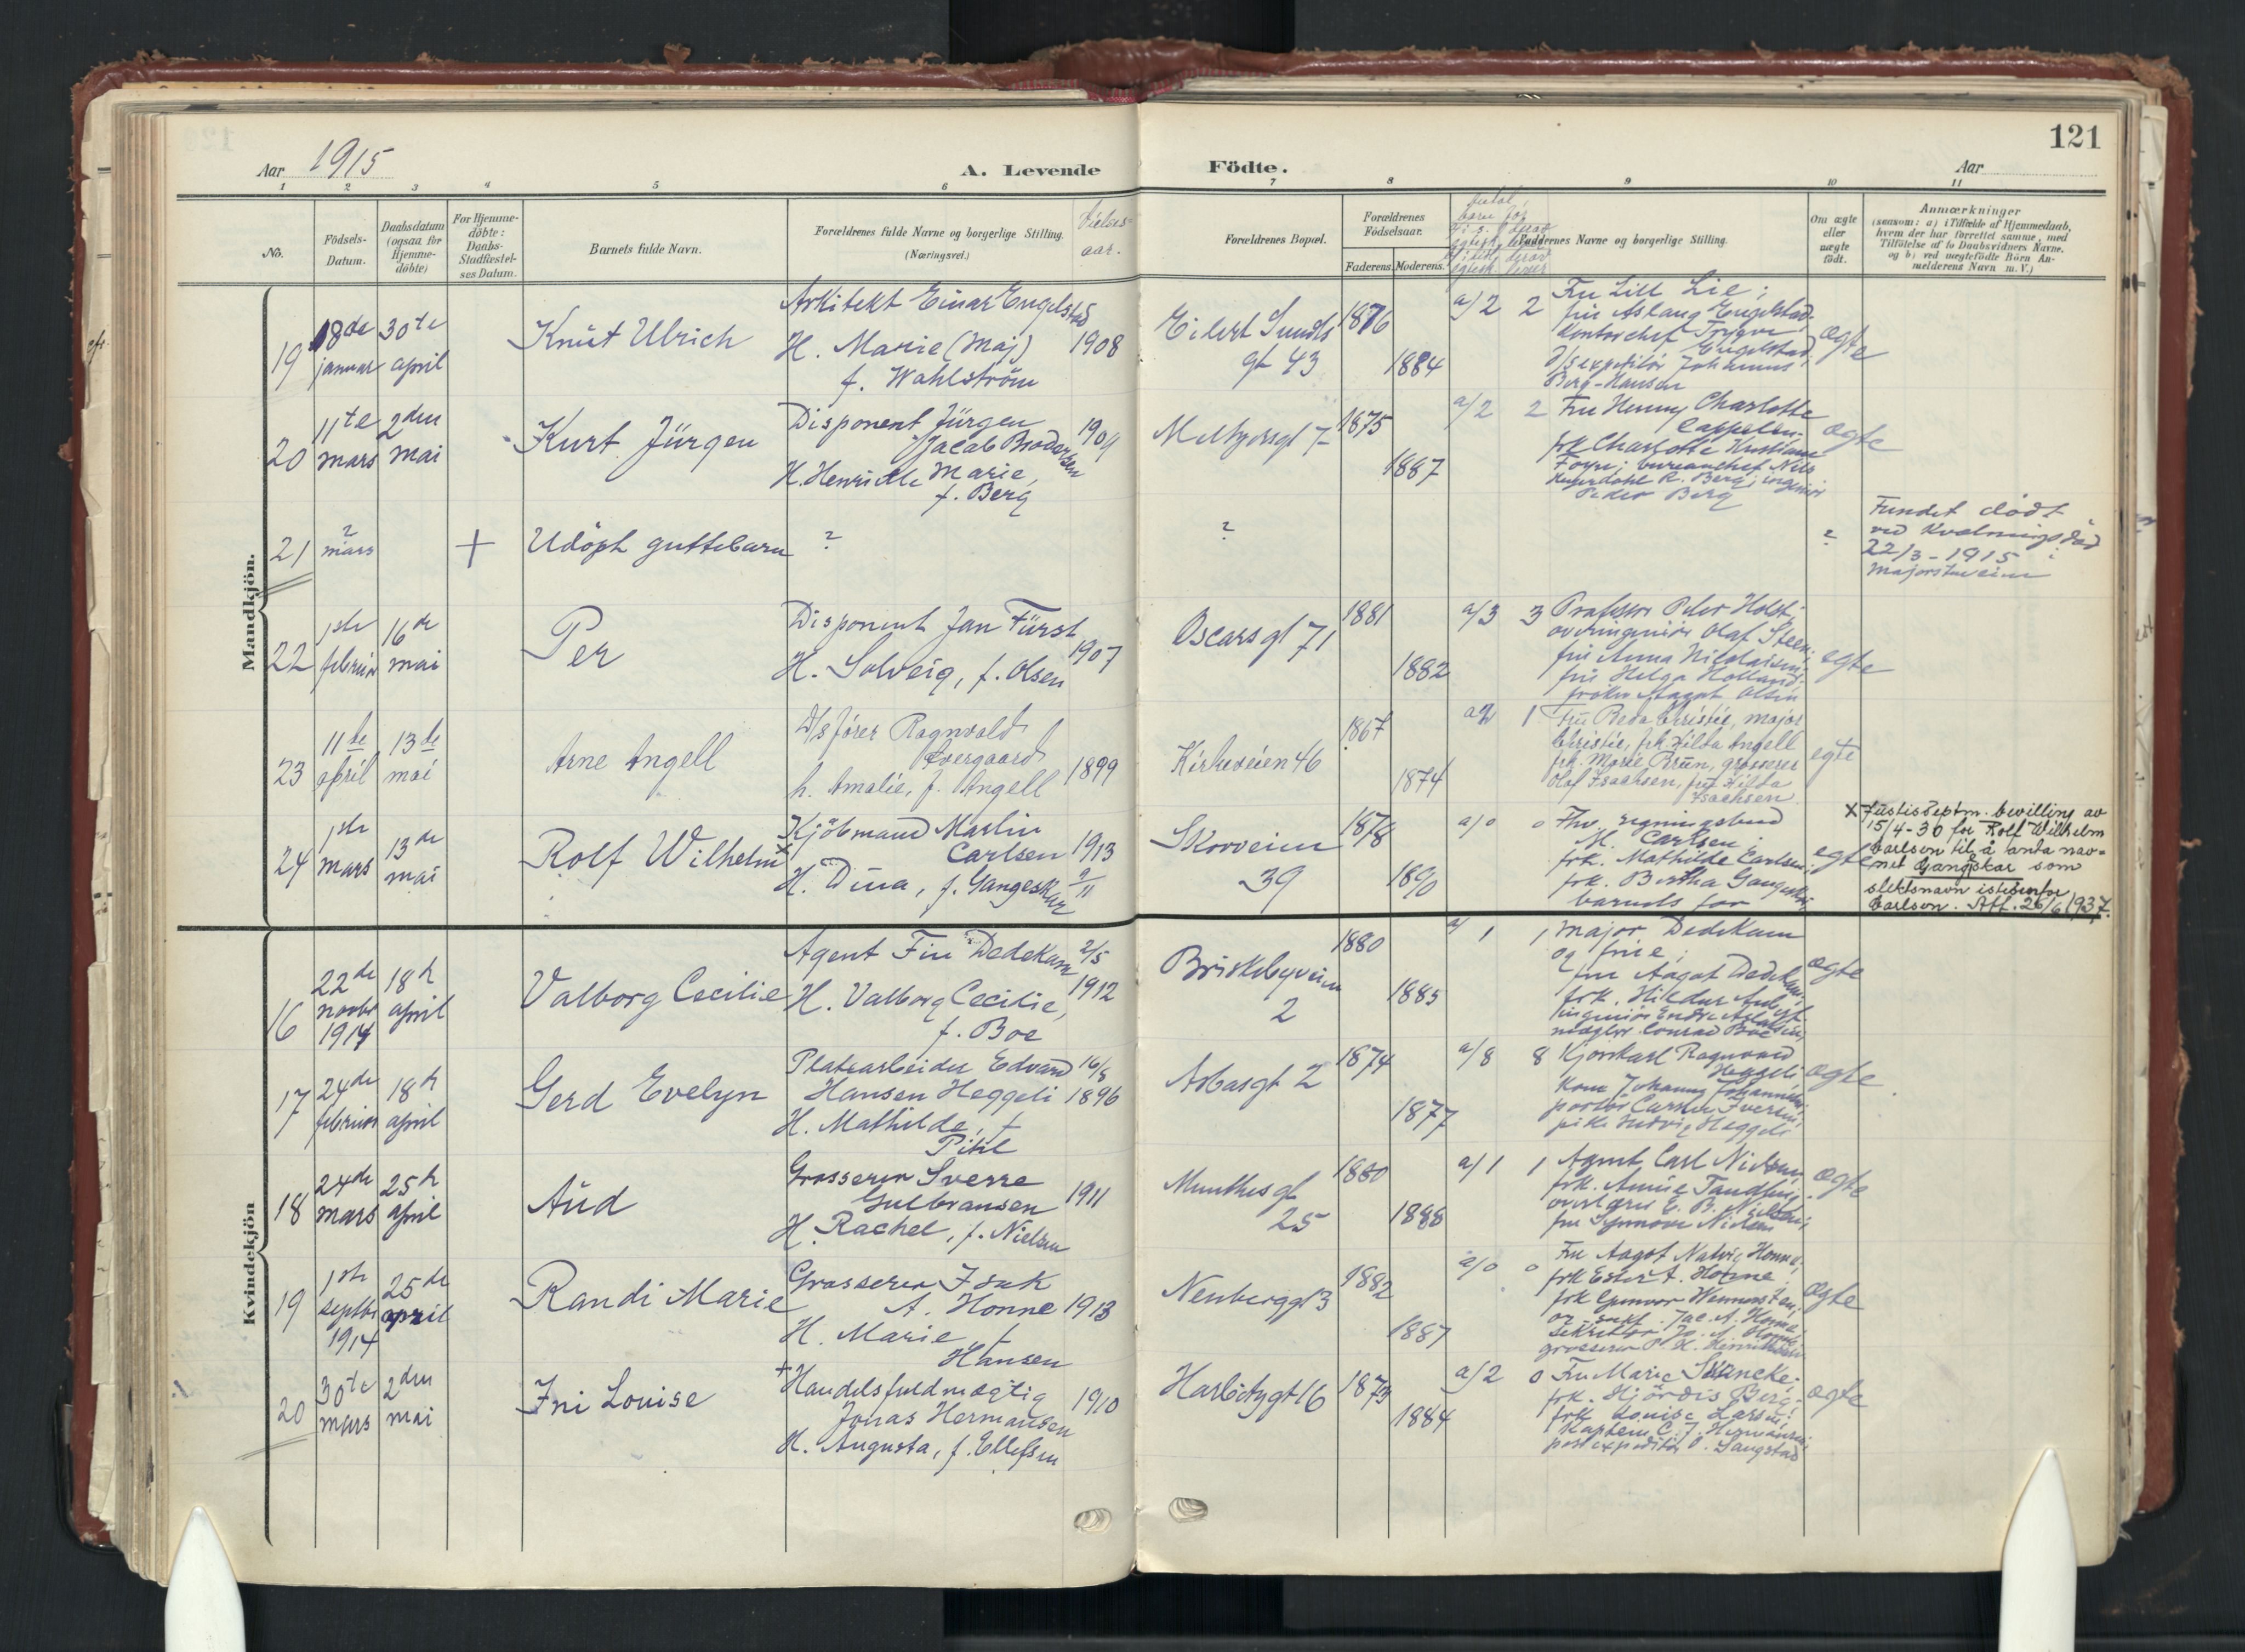 121
Aar 1915
A. Levende Födte.
Aar
1 2 3 4 5 6 7 8 9 10 11
No.
Födsels-Datum.
Daabsdatum (ogsaa for Hjemme-döbte)
For Hjemme-döbte: Daabs-Stadfæstel-ses Datum.
Barnets fulde Navn.
Forældrenes fulde Navne og borgerlige Stilling.
(Næringsvei.)
Vielses-aar.
Forældrenes Bopæl.
Forældrenes Födselsaar.
Faderens. Moderens.
Faddernes Navne og borgerlige Stilling.
Om ægte eller uægte födt.
Anmærkninger
(saasom: a) i Tilfælde af Hjemmedaab, hvem der har forrettet samme, med Tilföielse af to Daabsvidners Navne, og b) ved uægtefödte Börn An-melderens Navn m. V.)
Mandkjön.
19
18de januar
30te april
Knut Ulrich
Arkitekt Einar Engelstad
H. Marie (Maj)
f. Wahlström
1908
Eilert Sundts
gt 43
1876
1884
a/2 2
Fru Lill Lie;
fru Aslaug Engelstad;
kontorchef Trygve
Engelstad;
d/s expeditör Johannes
Berg-Hansen
ægte
20
11te mars
2den mai
Kurt Jürgen
Disponent Jürgen
Jacob Brodersen
H. Henriette Marie,
f. Berg
1904
Meltzersgt 7
1875
1887
a/2 2
Fru Henny Charlotte
Cappelen;
frk Charlotte Kristiane
Foyn; bureauchef Nils
R. Berg; ingeniör
Peder Berg
ægte
21
? mars
+
Udöpt guttebarn
?
?
?
Fundet dödt
ved Kvælningsdöd
22/3-1915 i
Majorstuveien
22
1ste februar
16de mai
Per
Disponent Jan Fürst
H. Solveig, f. Olsen
1907
Oscarsgt 71
1881
1882
a/3 3
Professor Peter Holst;
overingeniör Olaf Steen;
fru Anna Nicolaisen;
fru Helga Holland;
fröken Aagot Olsen
egte
23
11te april
13de mai
Arne Angell
D/s förer Ragnvald
Overgaard
h. Amalie, f. Angell
1899
Kirkeveien 46
1867
1874
a/2 1
Fru Beda Christie, major
Christie, frk. Hilda Angell
frk. Marie Brun, grosserer
Olaf Isachsen, fru Hilda
Isachsen
egte
24
1ste mars
13de mai
Rolf Wilhelm x
Kjöbmand Martin
Carlsen
H. Dina, f. Gangeskar
1913
9/11
Skovveien
39
1878
1890
a/0 0
Fhv. regningsbud
M. Carlsen
frk. Mathilde Carlsen;
frk. Bertha Gangeskar;
barnets far
egte
x Justisdeptm. bevilling av
15/4-30 for Rolf Wilhelm
Carlsen til å anta nav=
net Gangskar som
slektsnavn istedenfor
Carlsen. Att. 26/6 1937.
Kvindekjön
16
22de novbr 1914
18de april
Valborg Cecilie
Agent Finn Dedekam
H. Valborg Cecilie,
f. Boe
2/5
1912
Briskebyveien
2
1880
1885
a/1 1
Major Dedekam
og frue;
fru Aagot Dedekam;
mægler Conrad Boe
ægte
17
24de februar
18de april
Gerd Evelyn
Platearbeider Edvard
Hansen Heggeli
H. Mathilde, f.
Pihl
16/8
1896
Asbasgt 2
1874
1877
a/8 8
Kjörekarl Ragnvald
Heggeli
kone Johanne Johannesen;
portör Carsten Iversen;
pike Hedvig Heggeli
ægte
18
24de mars
25de april
Aud
Grosserer Sverre
Gulbransen
H. Rachel, f. Nielsen
1911
Munthesgt
25
1880
1888
a/1 1
Agent Carl Nielsen;
frk. Annie Tandberg;
overlærer E. B. Nielsen;
fru Synnöve Nielsen
ægte
19
1ste septbr 1914
25de april
Randi Marie
Grosserer Isak
A. Honne
H. Marie, f.
Hansen
1913
Neuberggt 3
1882
1887
a/0 0
Fru Aagot Natvig Honne;
frk Ester A. Honne;
frk Gunvor Wennersten;
ægte
20
30te mars
2den mai
Ini Louise
+Handelsfuldmægtig
Jonas Hermansen
H. Augusta, f. Ellefsen
1910
Harbitzgt 16
1873
1884
a/2 0
Fru Marie Skancke;
frk. Hjördis Berg;
frk Louise Larsen;
kaptein C. J. Hermansen;
postexpeditör O. Langstad
ægte